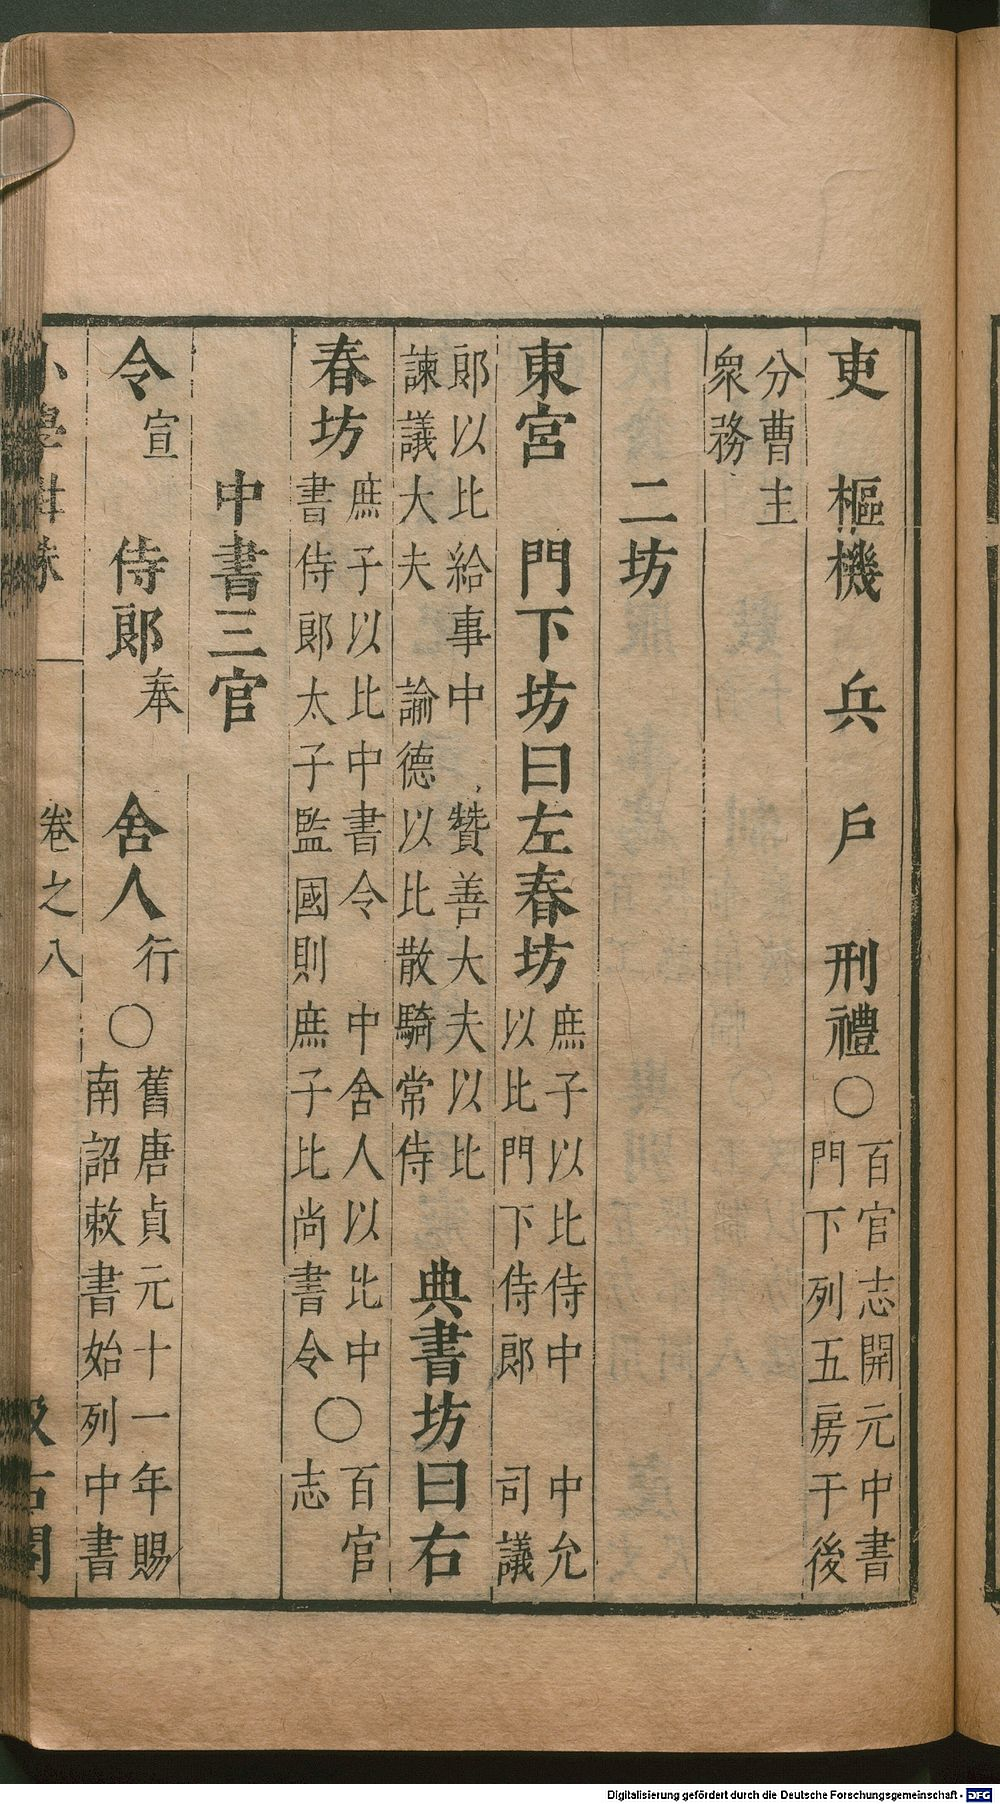 吏　樞機　兵　戶　刑禮○百官志開元中書門下列五房于後
分曹主衆務
二坊
東宮　門下坊曰左春坊庶子以比侍中　中允以比門下侍郎　司議
郎以比給事中　贊善大夫以比諫議大夫　諭德以比散騎常侍　典書坊曰右
春坊庶子以比中書令　中舍人以比中書侍郎太子監國則庶子比尚書令○百官志
中書三官
令宣　侍郎奉　舍人行○舊唐貞元十一年賜南詔敕書始列中書
小學紺珠　卷之八　汲古閣
Digitalisierung gefördert durch die Deutsche Forschungsgemeinschaft - DFG